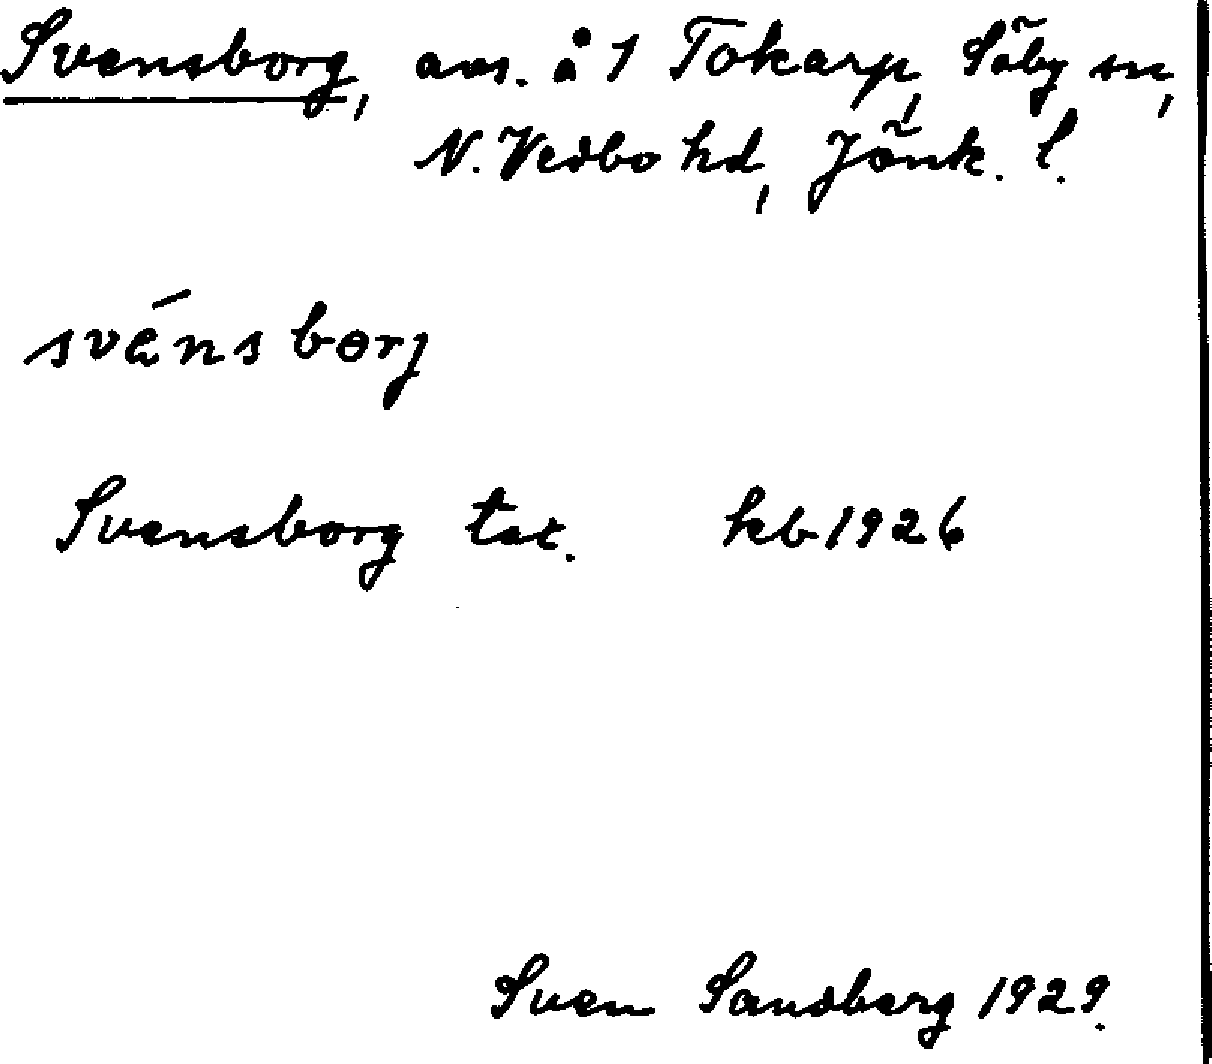 Svensborg, avs. å 1 Tokarp, Säby sn,
N. Vedbo hd, Jönk. l.
svénsbɵrj
Svensborg tat. kb 1926
Sven Sandberg 1929.